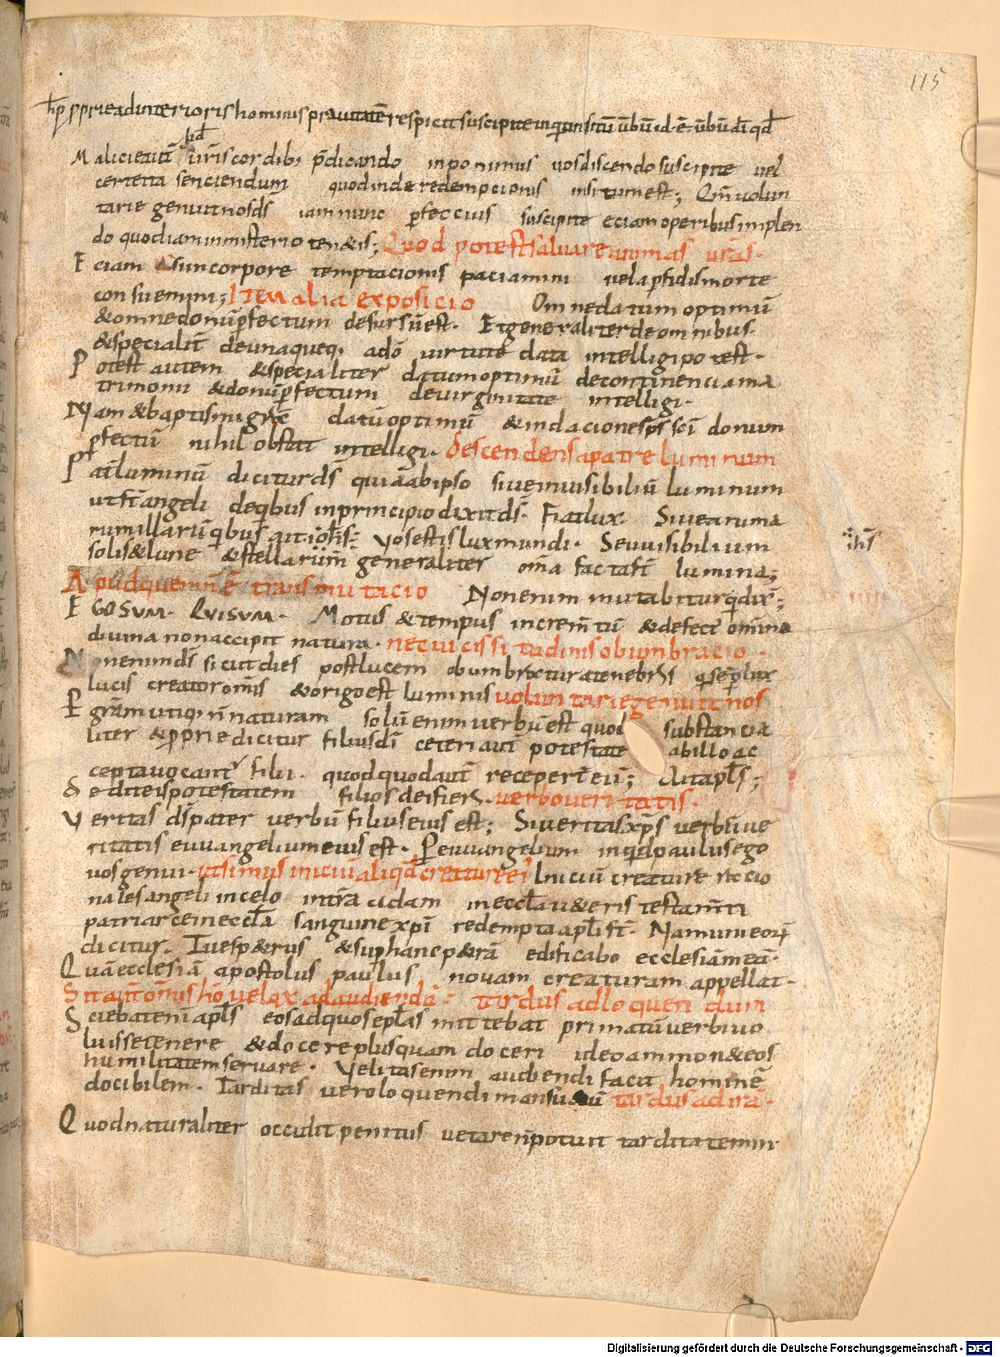 115
hęc pprie ad interioris hominis prauitatē respicit suscipite inquit insitū uerbū id ē uerbū dī qd
id
Malicientū uris cordib; pdicando inponimus uos discendo suscipite vel
certe ita senciendum quod inde redempcionis insitum est; Qm̄ volun
tarie genuit nos ds̄ iam nunc perfeccius suscipite eciam operibus implen
do quod iam in misterio tenetis; Quod potest saluare animas uras.
Eciam si in corpore temptacionis paciamini vel a perfidis morte
consuemini; Item alia exposicio Omne datum optimū
& omne donū pfectum desursū est. Et generaliter de omnibus.
& specialit̄ de una queq, a dō uirtute data intelligi potest.
Potest autem & specialiter datum optimū de continencia ma
trimonii & donū pfectum de virginitate intelligi.
Nam & baptismi grae datū optimū & in dacione sps sci donum
pfectū nihil obstat intelligi. descendens a patre luminum
Pat luminū dicitur ds̄ quia ab ipso siue inuisibiliū luminum
ut st̄ angeli de qbus in principio dixit ds̄. Fiat lux. Siue anima
rum illarū qbus ait iohs̄; Vos estis lux mundi. Seu uisibilium
ihs̄
solis & lune & stellarum generaliter om̄a facta st̄ lumina;
Apud quem n̄ ē transmutacio Non enim mutabitur q dix;
EGO SUM. QUI SUM. Motus & tempus incremtū & defect omnia
diuina non accipit natura. nec uicissitudinis obumbracio.
Non enim ds̄ sicut dies post lucem obumbratur a tenebris q semp lux
lucis creator omis & origo est luminis voluntarie genuit nos
P grām utiq, n̄ naturam solū enim verbū est quod substancia
liter & pprie dicitur filius dī ceteri aut̄ potestate ab illo ac
cepta uocant filii. quod quod aut̄ receper̄ eū; Ait apls;
Dedit eis potestatem filios dei fieri. verbo ueritatis.
Veritas ds̄ pater verbū filius eius est; Siue ritas xps verbū ue
ritatis euuangelium eius est. P euuangelium inqd paulus ego
uos genui. ut simus iniciū aliqd creature ei Iniciū creature racio
nales angeli in celo intra cidam in eccla u&eris testamti
patriarce in eccla sanguine xpi redempta apli st̄. Nam unicorū
dicitur. Tu es p&rus & sup hanc p&rā edificabo ecclesiā meā.
Quā ecclesiā apostolus paulus novam creaturam appellat.
Sit aut̄ omis ho velox ad audiendū. tardus ad loquendum
Sciebat eni apls eos ad quos eplas mittebat primatū verbi uo
luisse tenere & docere plus quam doceri ideo ammon& eos
humilitatem seruare. Velitas enim audiendi facit hominē
docibilem. Tarditas vero loquendi mansuetū tardus ad irā.
Quod naturaliter occulit penitus vetare n̄ potuit tarditatem in
Digitalisierung gefördert durch die Deutsche Forschungsgemeinschaft - DFG